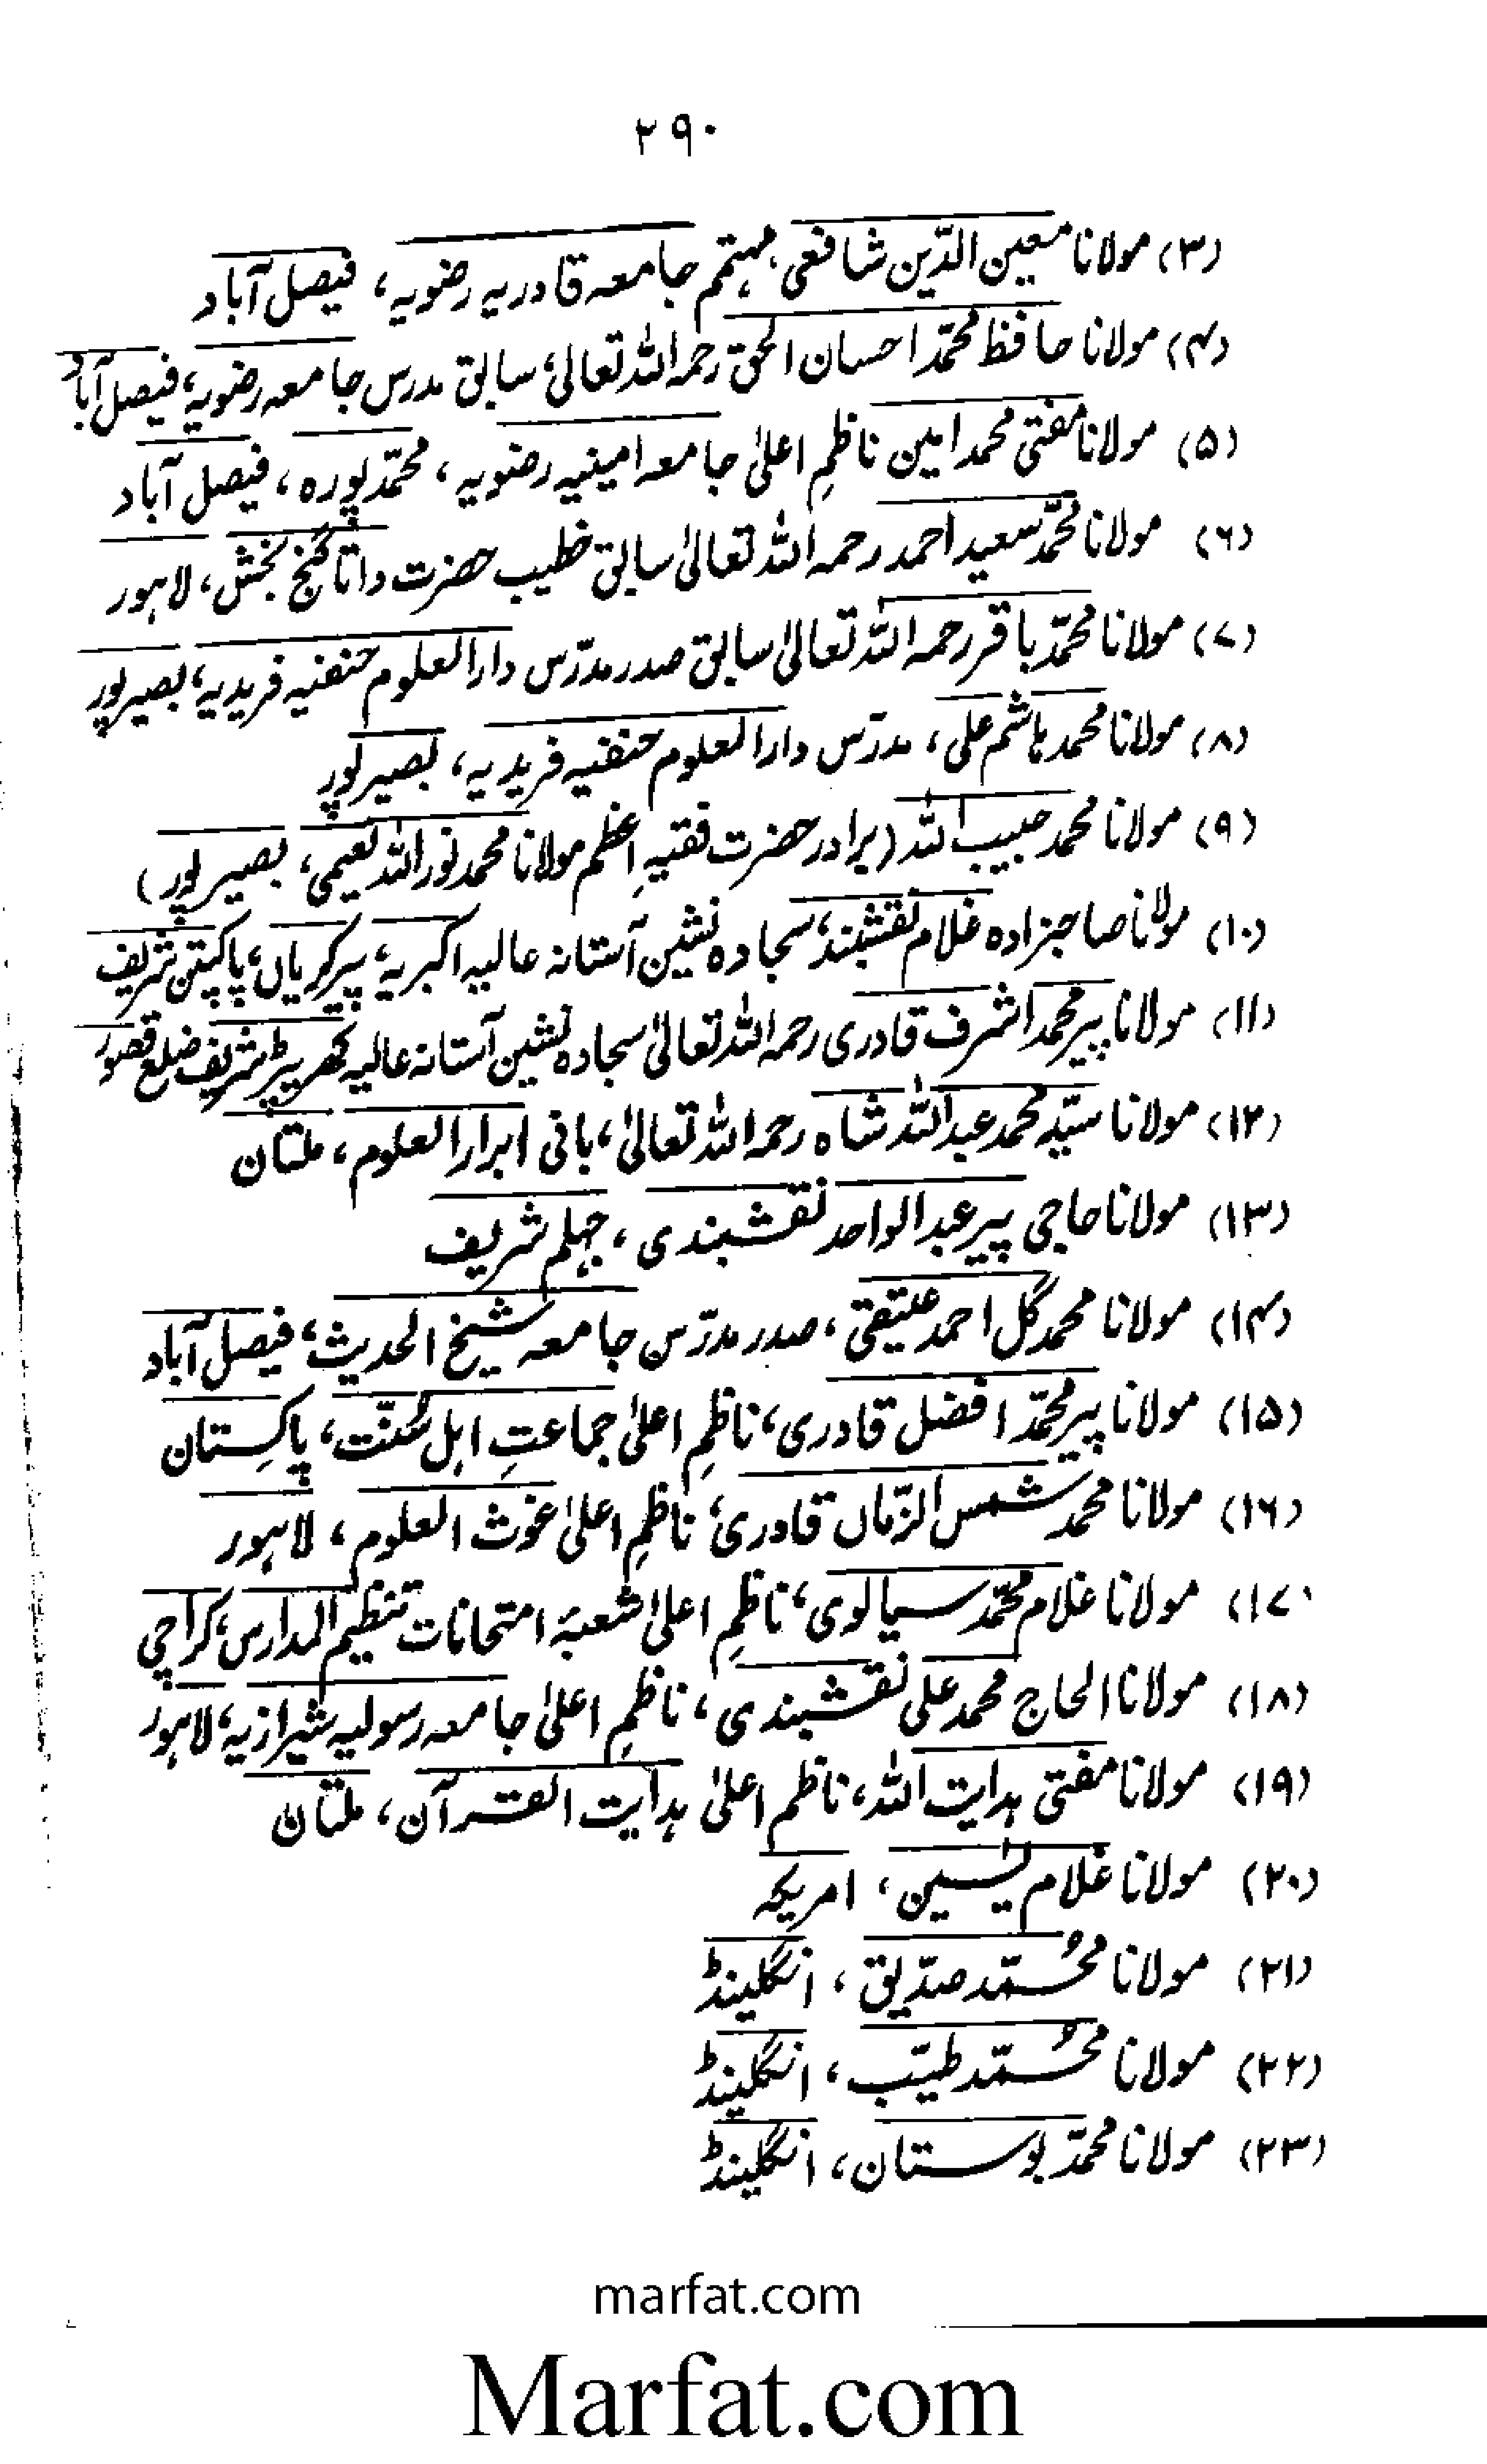 ۲۹۰
(۳) مولانا معین الدّین شافعی، مہتمم جامعہ قادریہ رضویہ، فیصل آباد
(۴) مولانا حافظ محمّد احسان الحق رحمہ اللہ تعالیٰ، سابق مدرس جامعہ رضویہ، فیصل آباد
(۵) مولانا مفتی محمد امین ناظمِ اعلیٰ جامعہ امینیہ رضویہ، محمّد پورہ، فیصل آباد
(۶) مولانا محمّد سعید احمد رحمہ اللہ تعالیٰ سابق خطیب حضرت داتا گنج بخش، لاہور
(۷) مولانا محمّد باقر رحمہ اللہ تعالیٰ سابق صدر مدرّس دارالعلوم حنفیہ فریدیہ، بصیر پور
(۸) مولانا محمد ہاشم علی، مدرّس دارالعلوم حنفیہ فریدیہ، بصیر پور
(۹) مولانا محمد حبیب اللہ (برادر حضرت فقیہِ اعظم مولانا محمد نور اللہ نعیمی، بصیر پور)
(۱۰) مولانا صاحبزادہ غلام نقشبند، سجادہ نشین آستانہ عالیہ اکبریہ، پیر کریاں، پاکپتن شریف
(۱۱) مولانا پیر محمد اشرف قادری رحمہ اللہ تعالیٰ سجادہ نشین آستانہ عالیہ کھریپڑ شریف ضلع قصور
(۱۲) مولانا سیّد محمد عبداللہ شاہ رحمہ اللہ تعالیٰ، بانی ابرار العلوم، ملتان
(۱۳) مولانا حاجی پیر عبدالواحد نقشبندی، جہلم شریف
(۱۴) مولانا محمد گل احمد عتیقی، صدر مدرّس جامعہ شیخ الحدیث، فیصل آباد
(۱۵) مولانا پیر محمّد افضل قادری، ناظمِ اعلیٰ جماعتِ اہلِ سُنّت، پاکستان
(۱۶) مولانا محمد شمس الزّماں قادری، ناظمِ اعلیٰ غوث العلوم، لاہور
(۱۷) مولانا غلام محمّد سیالوی، ناظمِ اعلیٰ شعبۂ امتحانات تنظیم المدارس، کراچی
(۱۸) مولانا الحاج محمد علی نقشبندی، ناظمِ اعلیٰ جامعہ رسولیہ شیرازیہ، لاہور
(۱۹) مولانا مفتی ہدایت اللہ، ناظم اعلیٰ ہدایت القرآن، ملتان
(۲۰) مولانا غلام یٰسین، امریکہ
(۲۱) مولانا محُمّد صدّیق، انگلینڈ
(۲۲) مولانا محُمّد طیّب، انگلینڈ
(۲۳) مولانا محمّد بوستان، انگلینڈ
marfat.com
Marfat.com